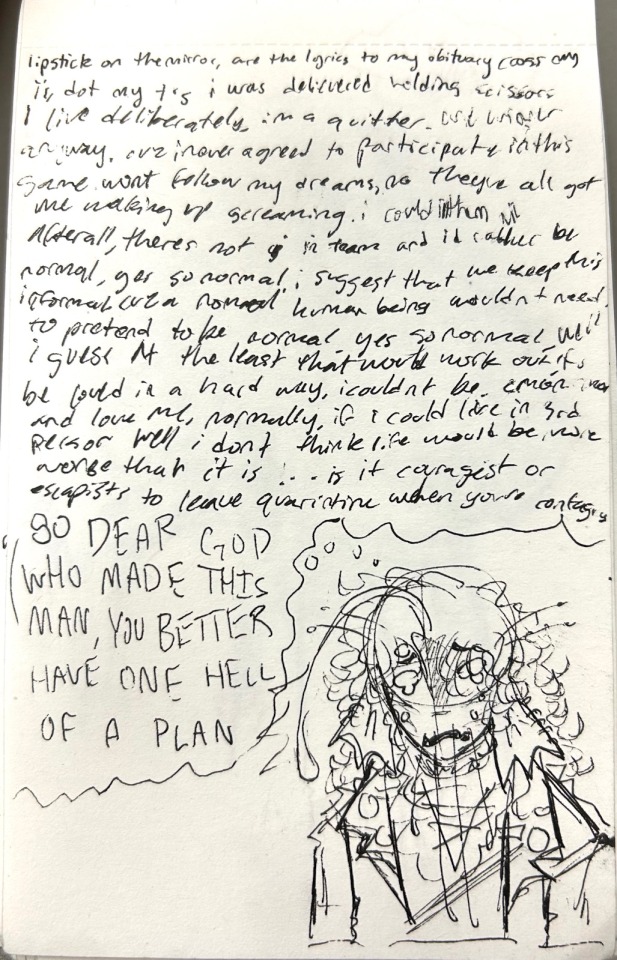 lipstick on the mirror, are the lyrics to my obituary cross my
i's, dot my t's i was delivered holding scissors
I live deliberately, im a quitter.
anyway. cuz i never agreed to participate in this
game. wont follow my dreams, no theyve all got
me waking up screaming. i could
Afterall, theres not i in team and id rather be
normal, yes so normal. i suggest that we keep this
informal cuz a normal human being wouldnt need
to pretend to be normal yes so normal well
i guess At the least that would work out if
be could in a hard way, i couldnt be
and love me, normally, if i could live in 3rd
person well i dont think life would be more
worse than it is !... is it couragist or
escapists to leave quarintine when youre contagis
SO DEAR GOD
WHO MADE THIS
MAN, YOU BETTER
HAVE ONE HELL
OF A PLAN